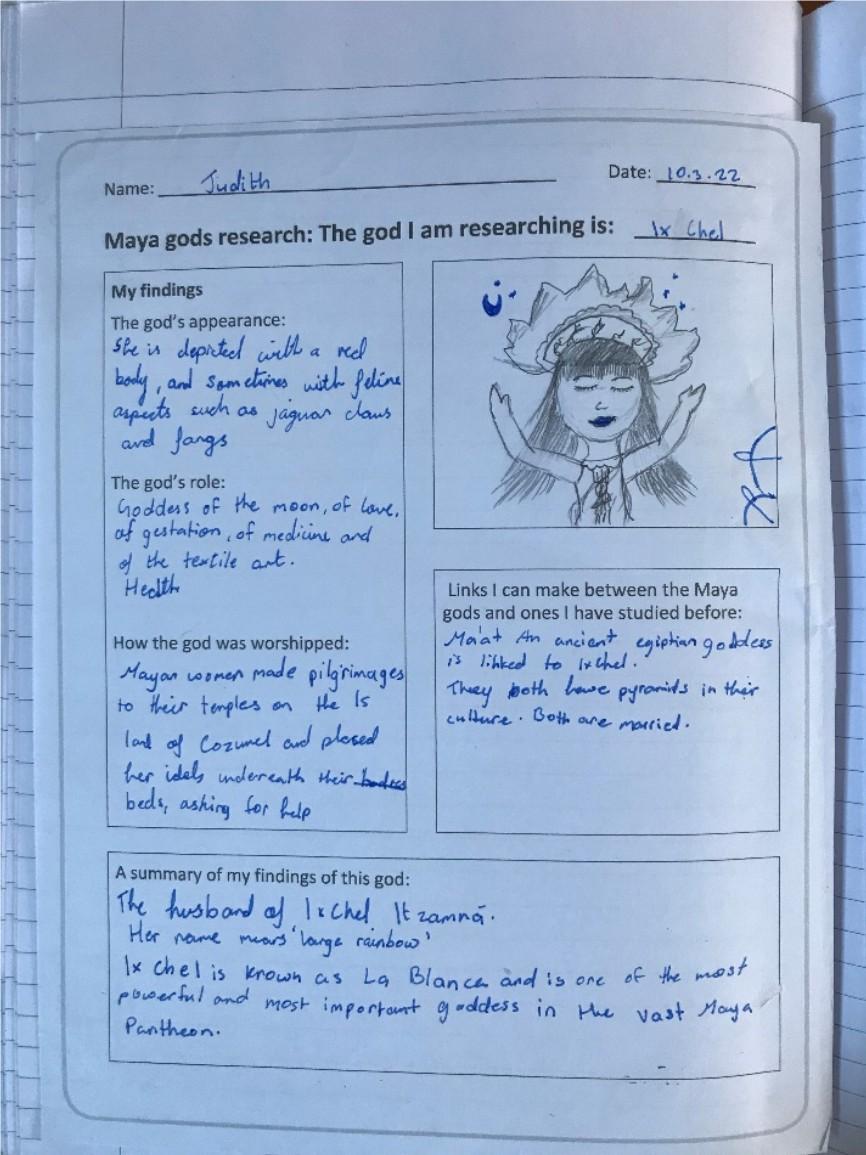 Name: Judith
Date: 10.3.22
Maya gods research: The god I am researching is: Ix Chel
My findings
The god's appearance:
She is depicted with a red
body, and sometimes with feline
aspects such as jaguar claws
and fangs
The god's role:
Goddess of the moon, of love,
of gestation, of medicine and
of the textile art.
Health
How the god was worshipped:
Mayan women made pilgrimages
to their temples on the Is
land of Cozumel and plased
her idels underneath their
beds, asking for help
Links I can make between the Maya
gods and ones I have studied before:
Ma'at An ancient egiptian goddess
is linked to Ixchel.
They both have pyramids in their
culture. Both are married.
A summary of my findings of this god:
The husband of Ixchel Itzamná.
Her name mears 'large rainbow'
Ix Chel is known as La Blanca and is one of the most
powerful and most important goddess in the vast Maya
Pantheon.